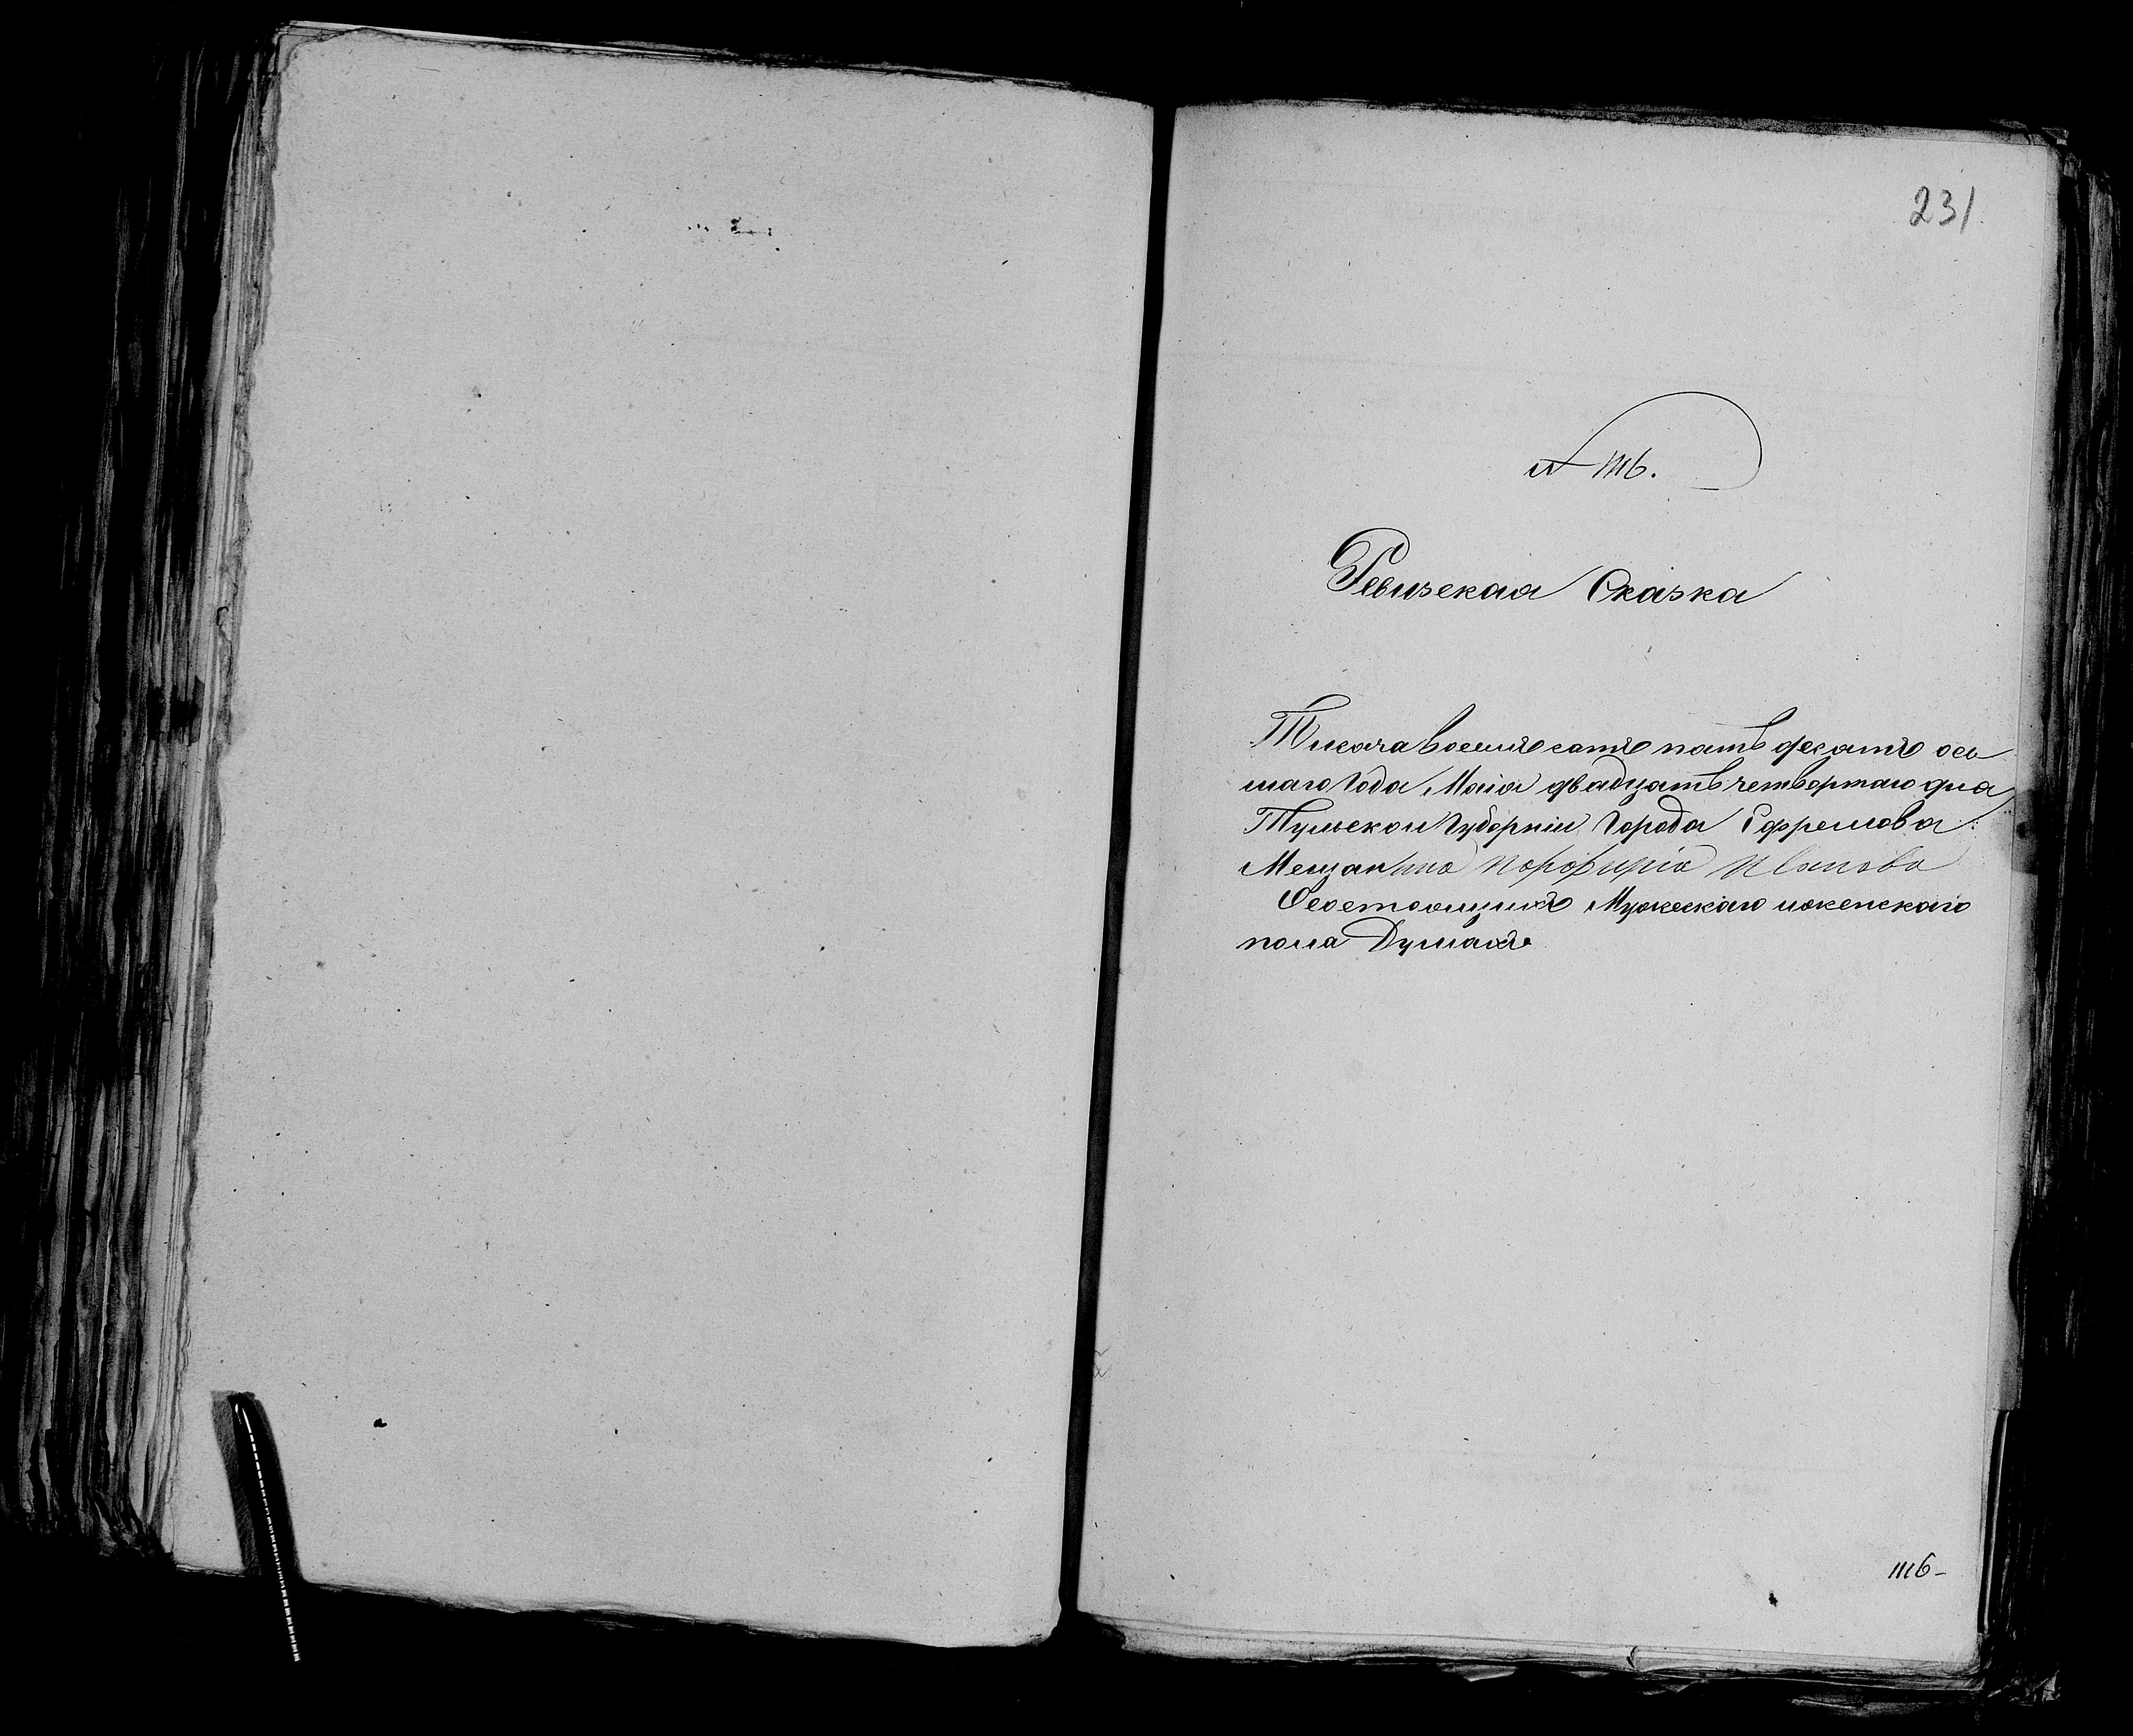 231
№ 1116.
Ревизская Сказка
Тысяча восемъ сотъ пять десятъ ось
маго Года Маія двадцать четвертаго дня
Тульской Губерніи Города Ефремова
Мещанина Порфирія Иванова
О состоящихъ Мужескаго и женскаго
пола Душахъ
1116